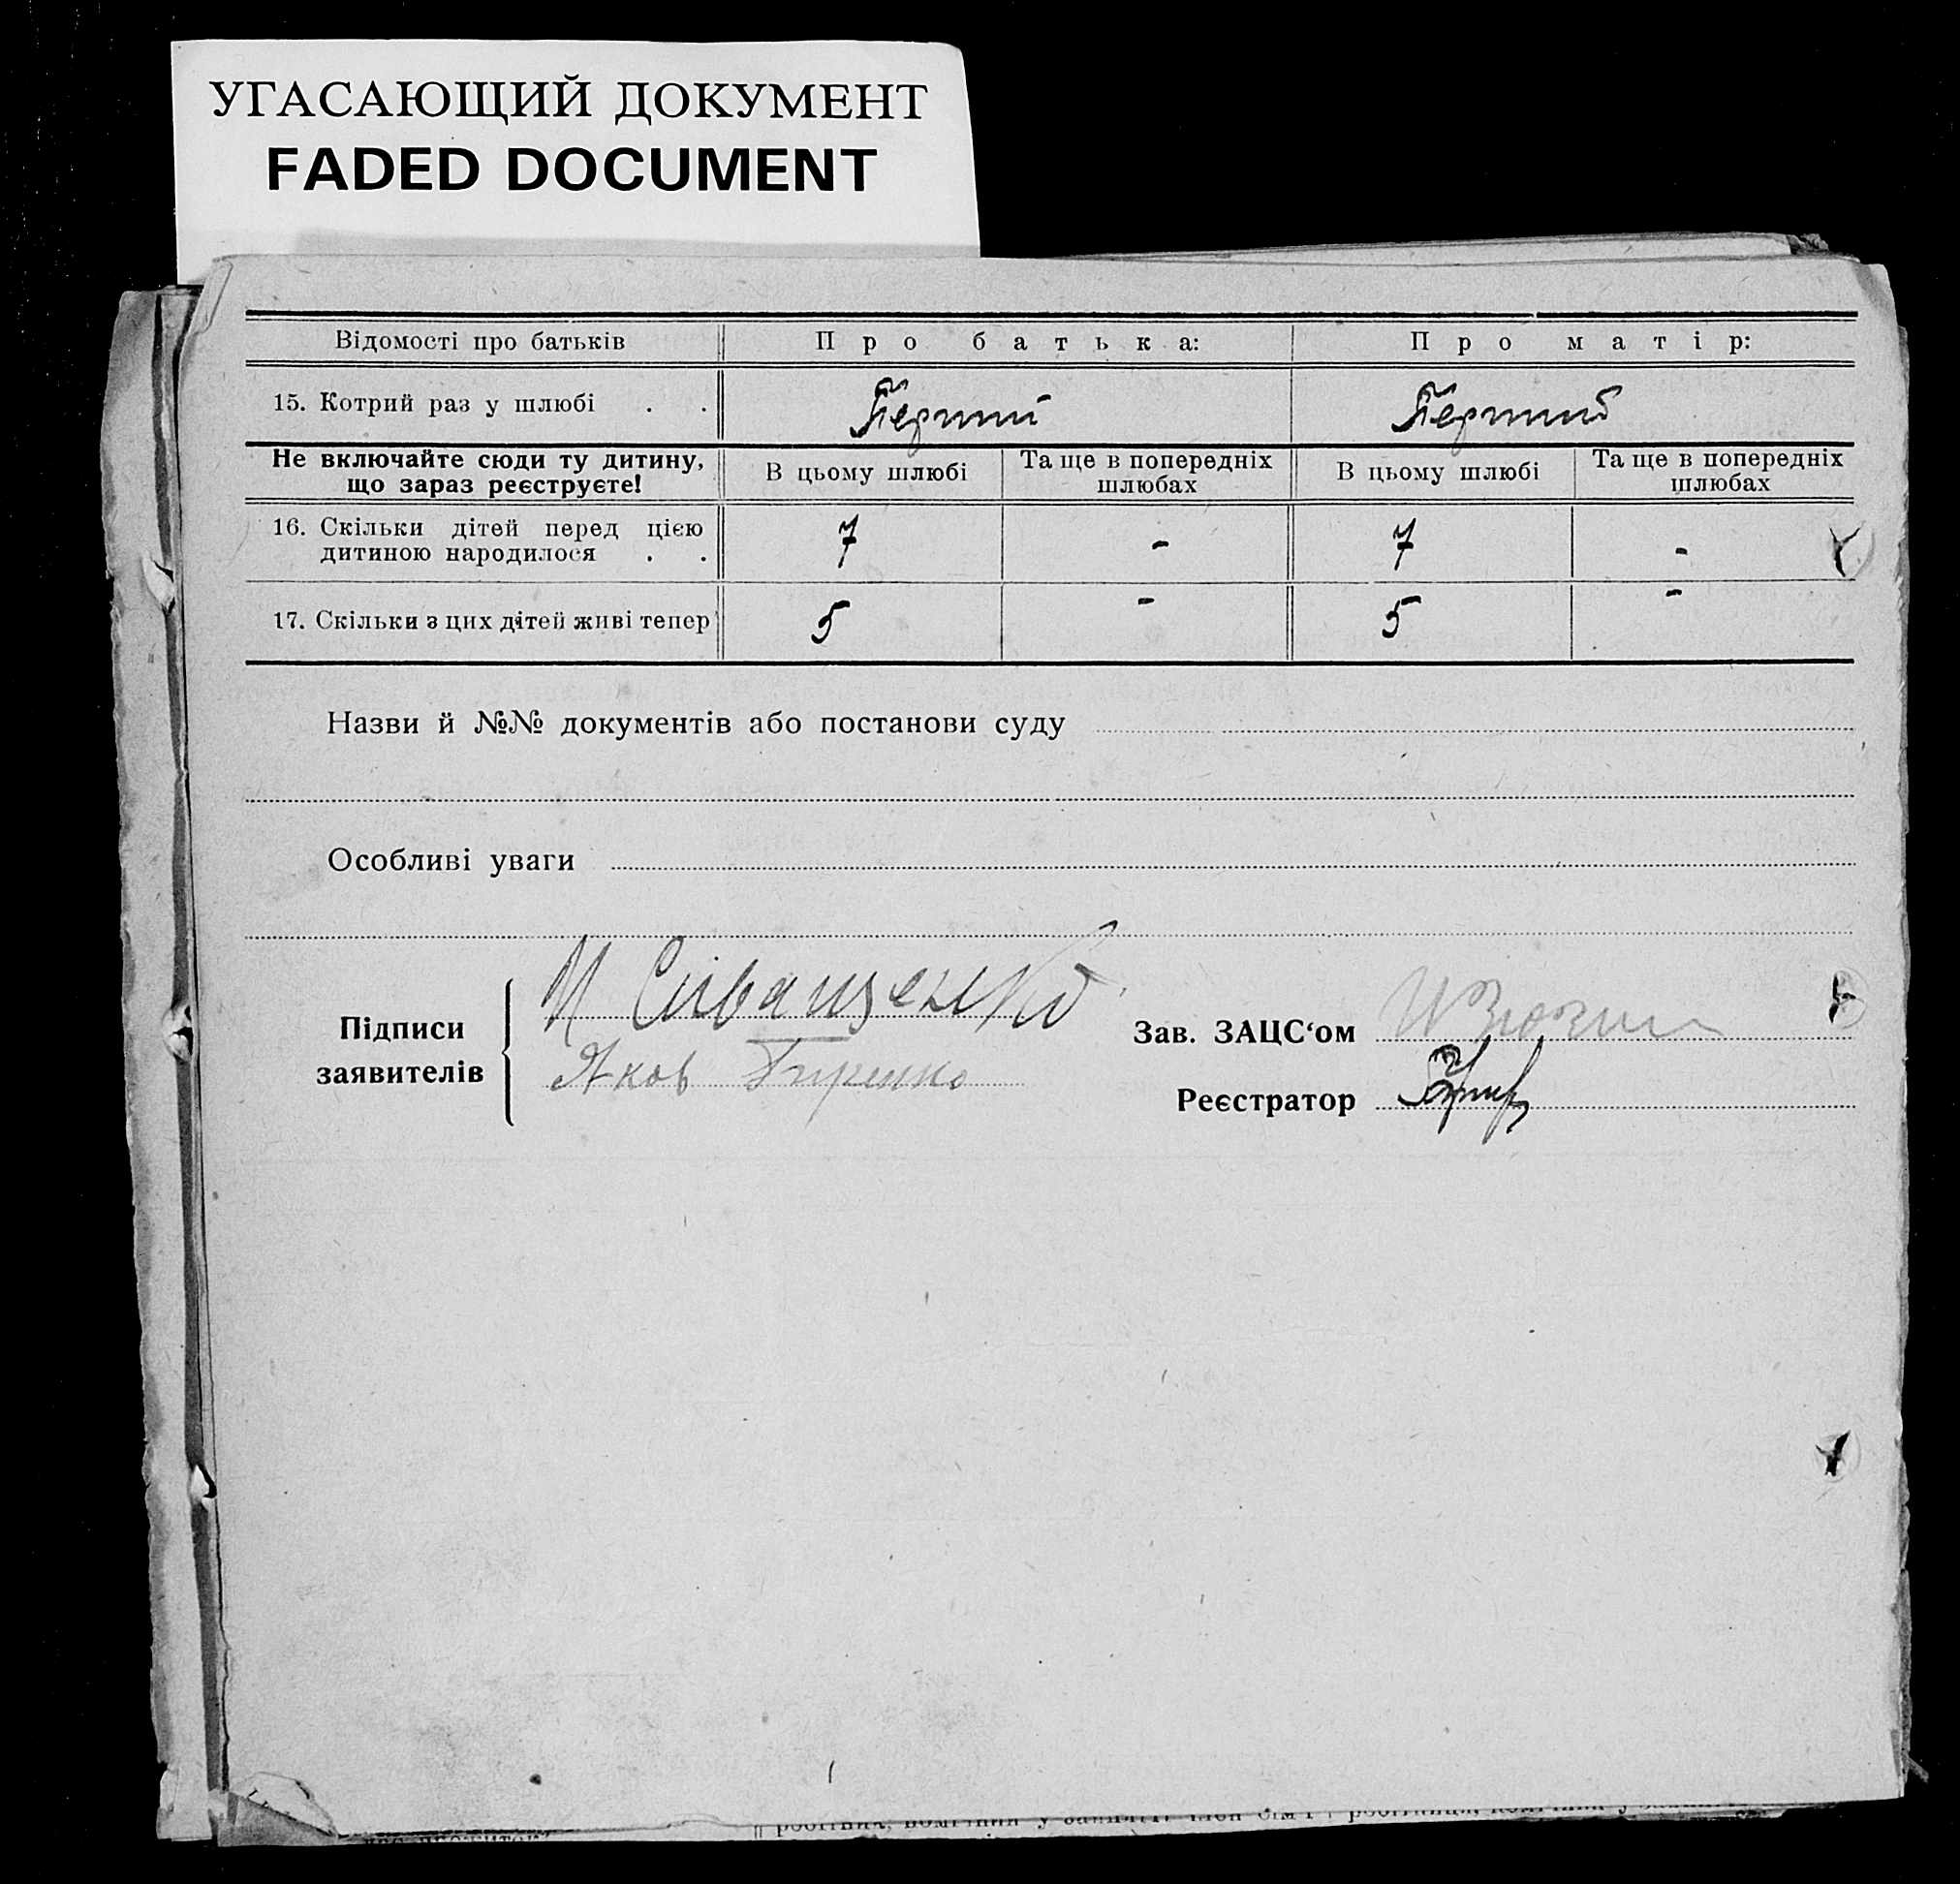 УГАСАЮЩИЙ ДОКУМЕНТ
FADED DOCUMENT
Відомості про батьків Про батька: Про матір:
15. Котрий раз у шлюбі . . Перший Перший
Не включайте сюди ту дитину, що зараз реєструєте! В цьому шлюбі Та ще в попередніх шлюбах В цьому шлюбі Та ще в попередніх шлюбах
16. Скільки дітей перед цією
дитиною народилося . . 7 - 7 -
17. Скільки з цих дітей живі тепер 5 - 5 -
Назви й №№ документів або постанови суду
Особливі уваги
Підписи заявителів
Яков
Зав. ЗАЦС‘ом
Реєстратор